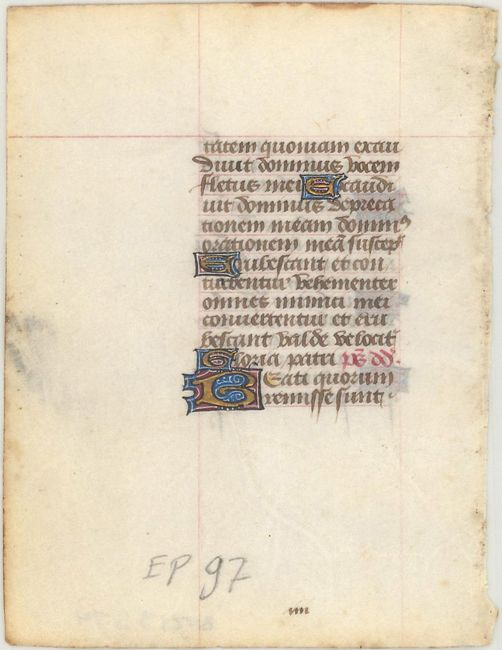 tatem quoniam exau
diuit dominus vocem
fletus mei Exaudi
uit dominus depreca
tionem meam domin⁹
orationem meā suscep̄
Erubescant et con
turbentur vehementer
omnes inimici mei
conuertentur et eru
bescant valde velocit̄
Gloria patri p̄s dd.
Beati quorum
remisse sunt
EP 97
iiii